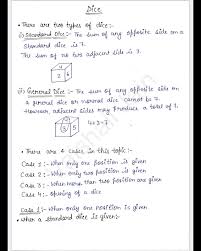 Dice
• There are two types of dice:-
(i) Standard Dice :- The sum of any opposite side on a
standard dice is 7.
The sum of no two adjacent side is 7.
4
2 6
(ii) General Dice :- The sum of any opposite side on
a general dice or normal dice cannot be 7.
However, adjacent sides may produce a total of 7.
4
3 5
4+3=7
• There are 4 cases in this topic:-
Case 1 :- When only one position is given
Case 2 :- When two position are given
Case 3 :- When more than two position are given
Case 4 :- Opening of a dice
Case 1 :- When only one position is given.
• When a standard dice is given:-